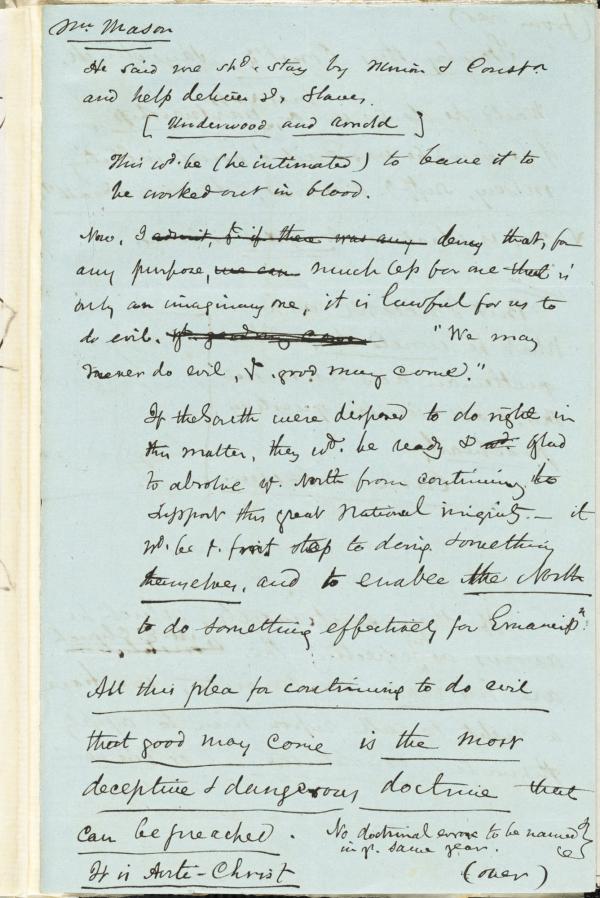 Mr. Mason
He said we shd. stay by Union & Constn
and help deliver ye. Slaves.
[Underwood and Arnold]
This wd. be (he intimated) to leave it to
be worked out in blood.
Now, I admit, yt. if there was any deny that, for
any purpose, we can much less for one that is
only an imaginary one, it is lawful for us to
do evil. "We may
never do evil, yt. good may come."
If the South were disposed to do right in
this matter, they wd. be ready & glad
to absolve ye. North from continuing to
support this great National iniquity — it
wd. be ye. first step to doing something
themselves, and to enable the North
to do something effectively for Emancipn.
All this plea for continuing to do evil
that good may come is the most
deceptive & dangerous doctrine that
can be preached. No doctrinal error to be named
in ye. same year.
It is Anti-Christ (over)